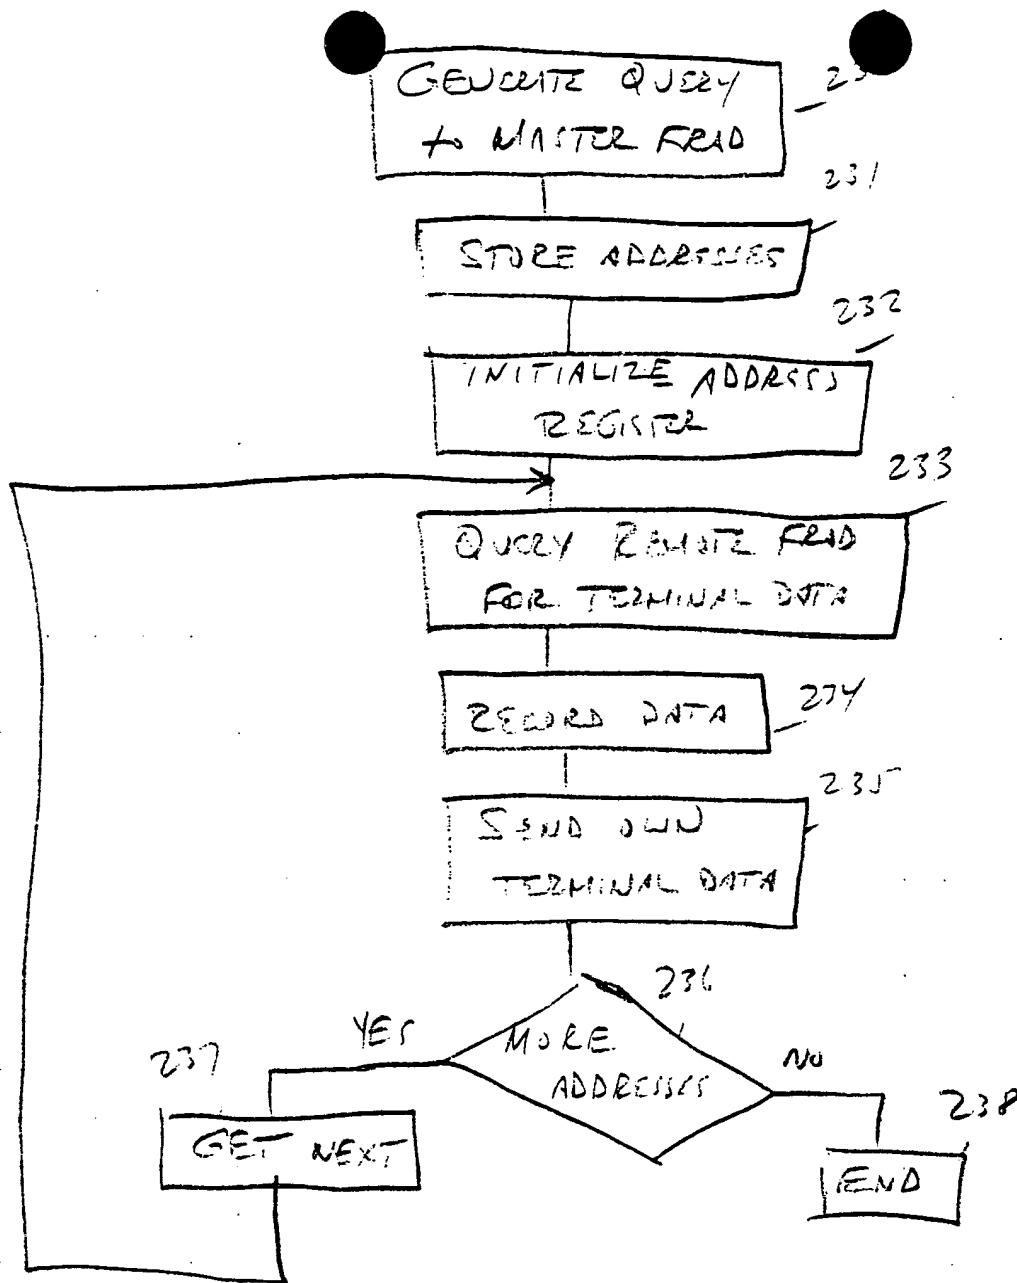 GENERATE QUERY
to MASTER FRAD
231
STORE ADDRESSES
232
INITIALIZE ADDRESS
REGISTER
233
QUERY REMOTE FRAD
FOR TERMINAL DATA
234
RECORD DATA
235
SEND OWN
TERMINAL DATA
236
YES
MORE
ADDRESSES
NO
237
GET NEXT
238
END